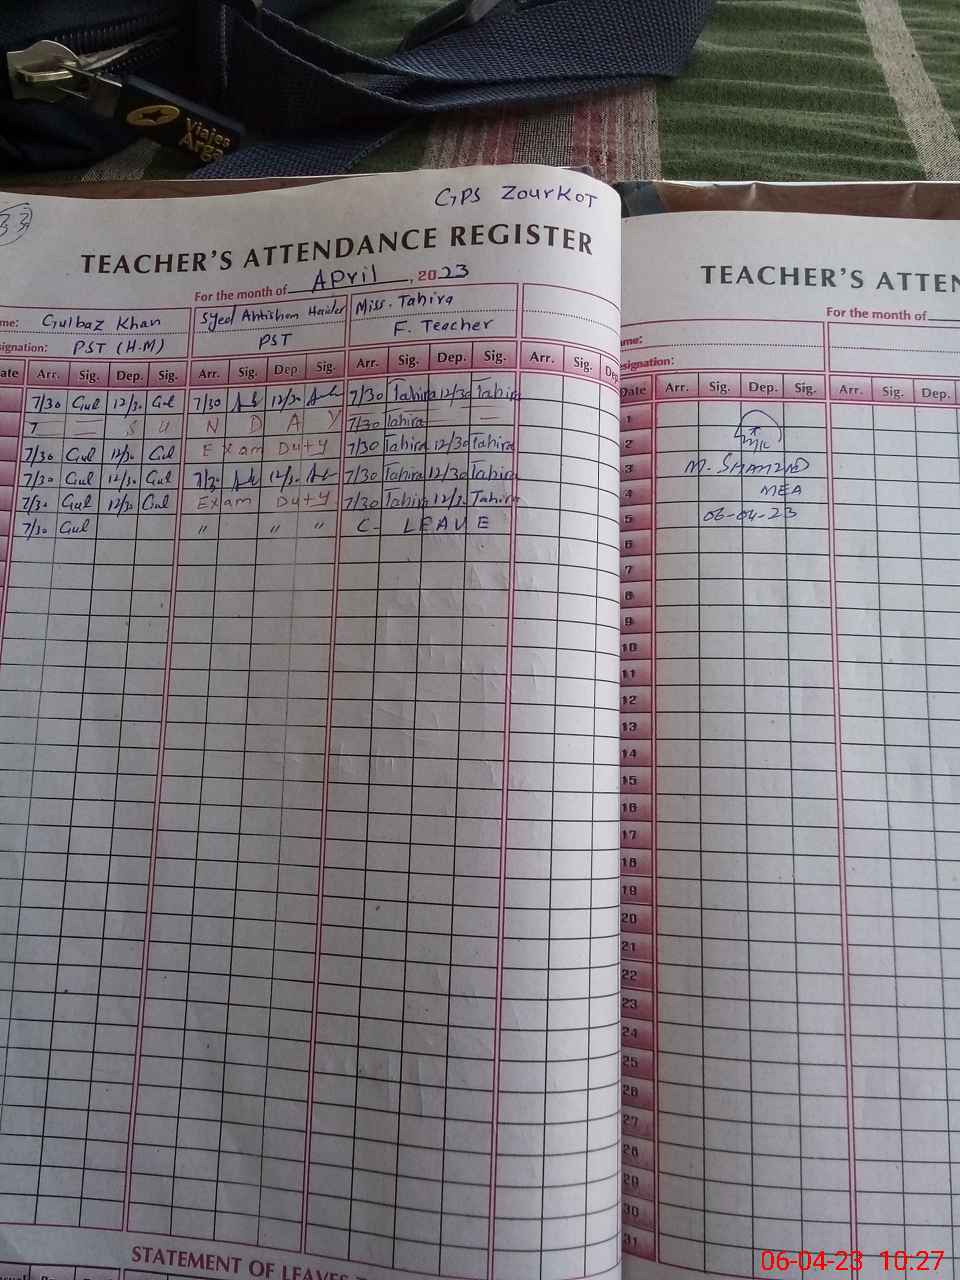 Viajes
Arga
GPS ZOURKOT
33
TEACHER'S ATTENDANCE REGISTER
For the month of April, 2023
me: Gulbaz Khan Syed Ahtisham Haider Miss. Tahira
signation: PST (H.M) PST F. Teacher
ate Arr. Sig. Dep. Sig. Arr. Sig. Dep Sig. Arr. Sig. Dep. Sig. Arr. Sig. Dep
7/30 Gul 12/30 Gul 7/30 12/30 7/30 Tahira 12/30 Tahira
7 S U N D A Y 7/30 Tahira
7/30 Gul 12/30 Gul Exam Duty 7/30 Tahira 12/30 Tahira
7/30 Gul 12/30 Gul 7/30 12/30 7/30 Tahira 12/30 Tahira
7/30 Gul 12/30 Gul Exam Duty 7/30 Tahira 12/30 Tahira
7/30 Gul " " " C- LEAVE
STATEMENT OF LEAVES
TEACHER'S ATTEN
For the month of
ame:
esignation:
Date Arr. Sig. Dep. Sig. Arr. Sig. Dep.
1
2
3 M. SHAMZAD
4 MEA
5 06-04-23
6
7
8
9
10
11
12
13
14
15
16
17
18
19
20
21
22
23
24
25
26
27
28
29
30
31
06-04-23 10.27